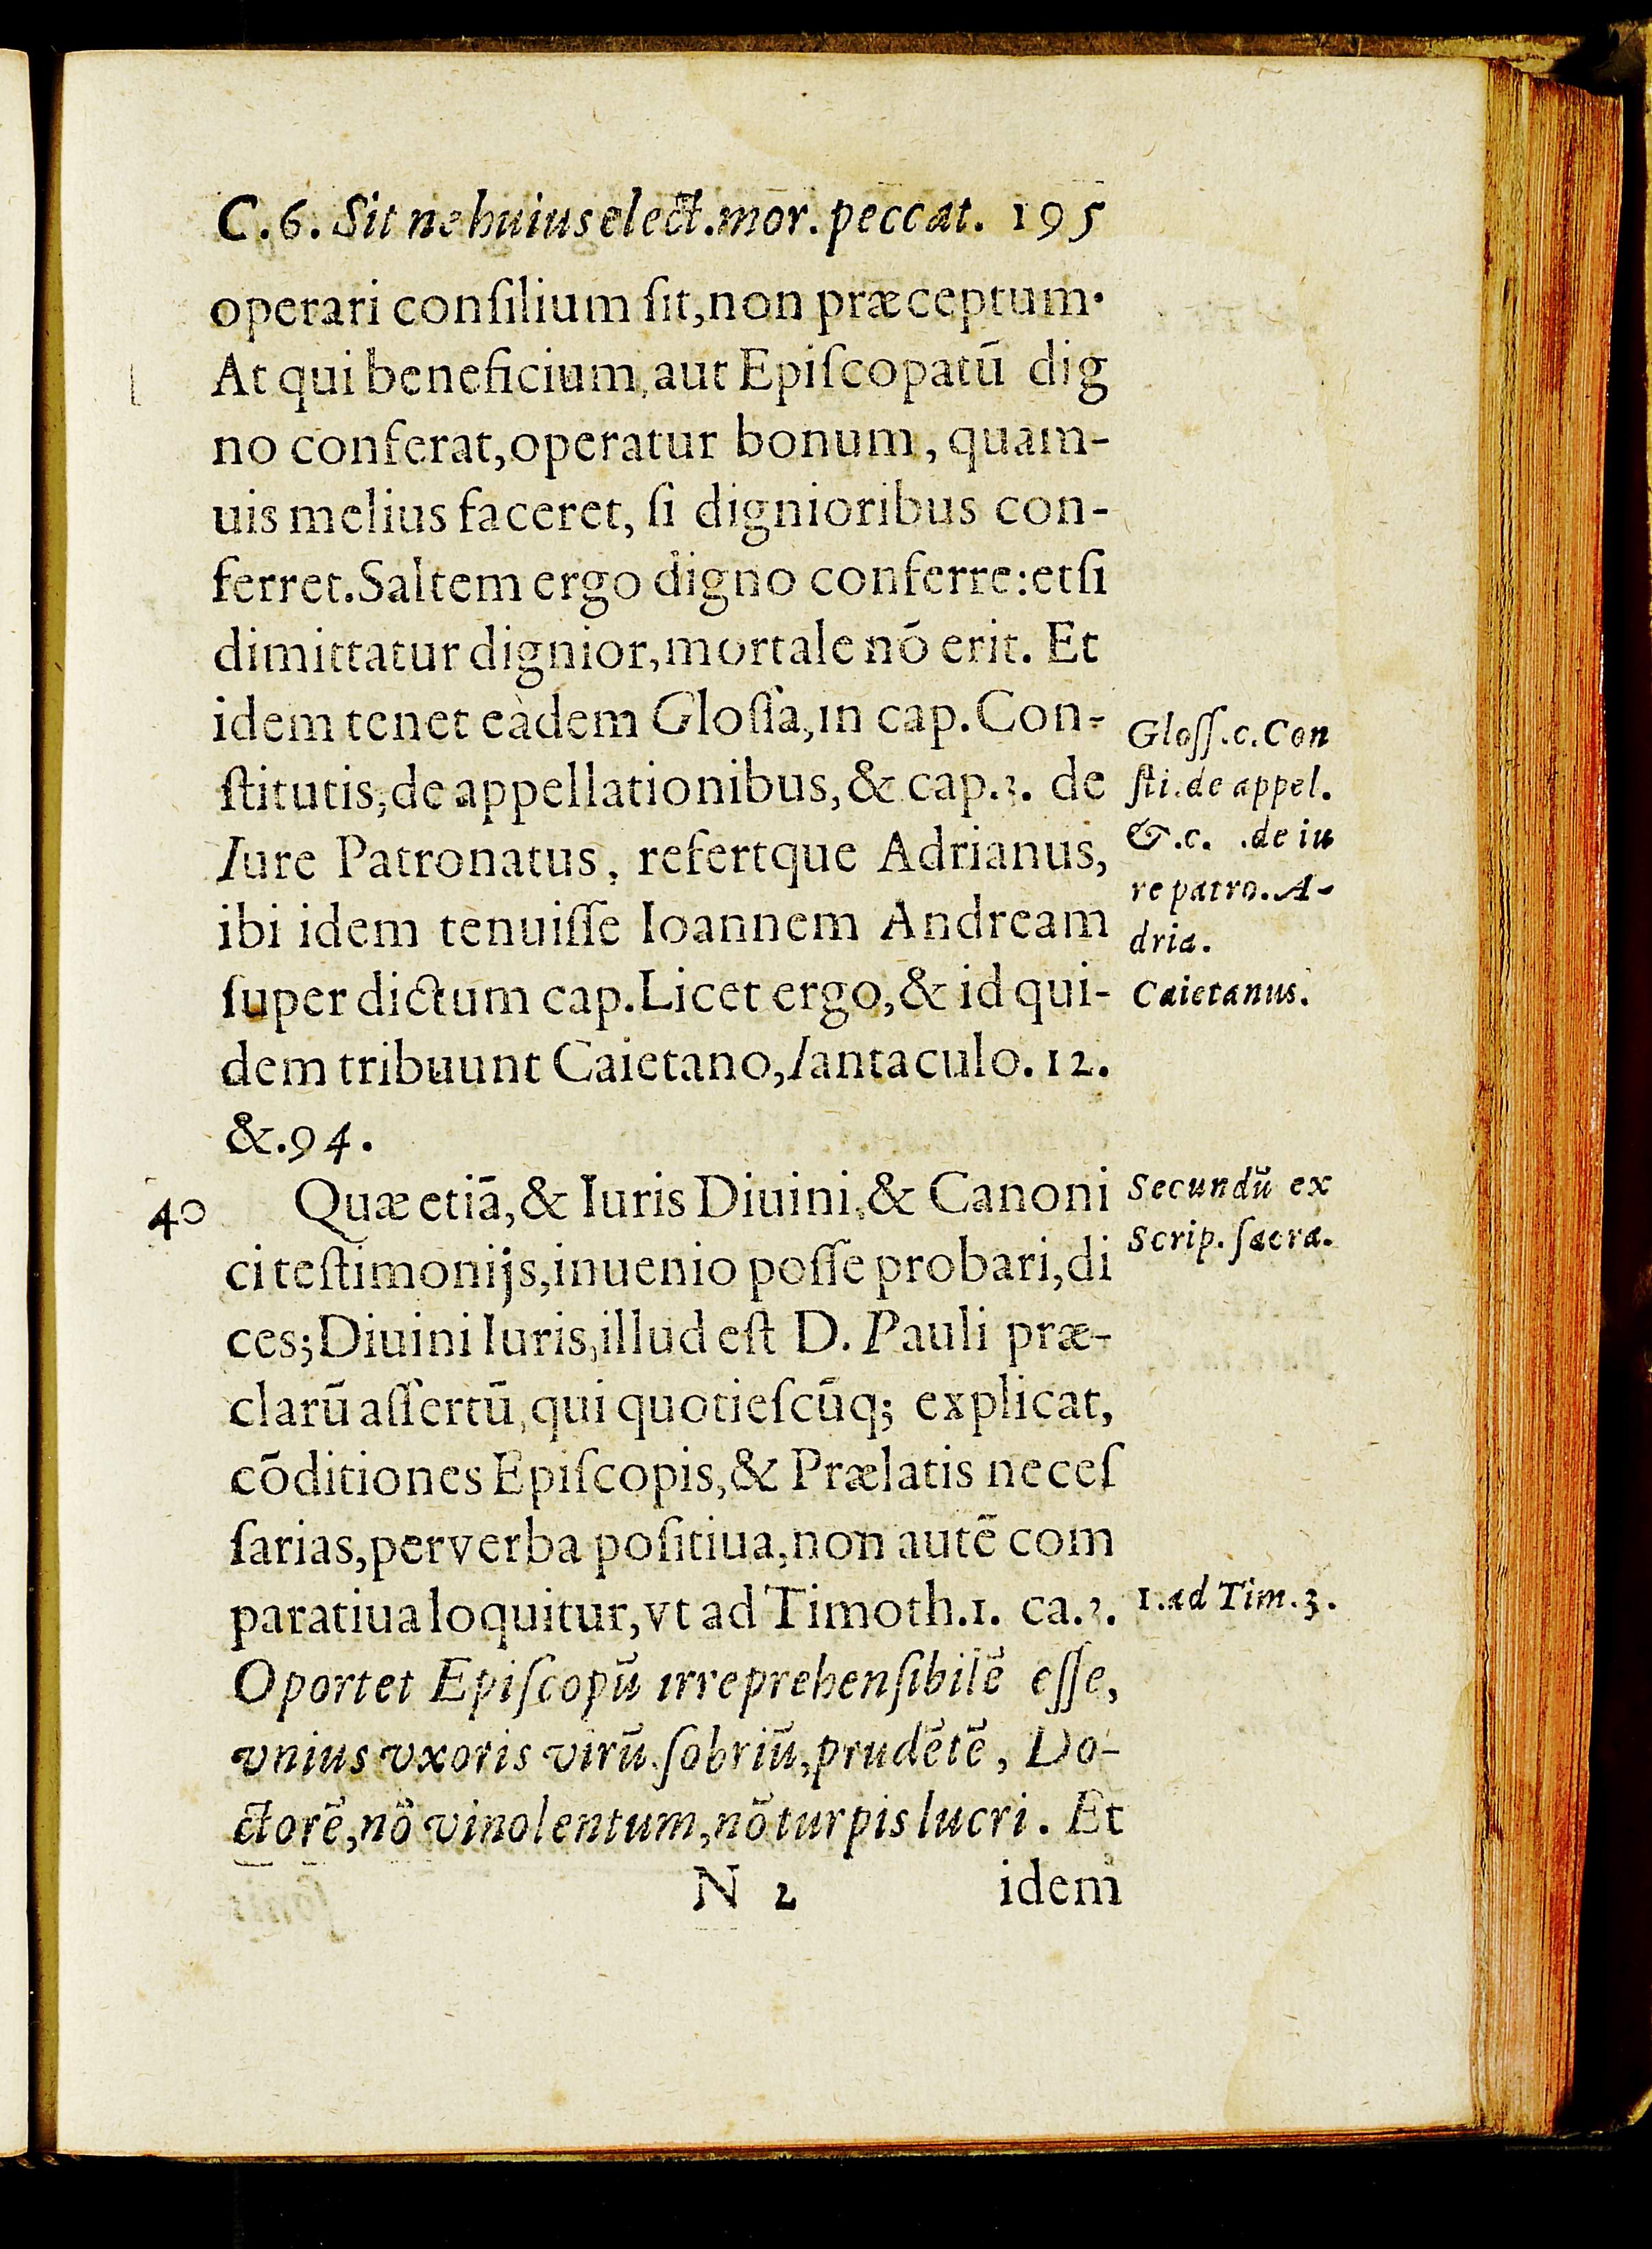 C.6. Sit ne huius elect.mor.peccat. 195
operari conſilium ſit,non præceptum.
At qui beneficium,aut Epiſcopatū dig
no conferat,operatur bonum, quam-
uis melius faceret, ſi dignioribus con-
ferret.Saltem ergo digno conferre:etſi
dimittatur dignior,mortale nō erit. Et
idem tenet eàdem Gloſſa,in cap.Con-
ſtitutis,de appellationibus,& cap.3. de
Iure Patronatus, refertque Adrianus,
ibi idem tenuiſſe Ioannem Andream
ſuper dictum cap.Licet ergo,& id qui-
dem tribuunt Caietano,Iantaculo.12.
&.94.
Gloſſ.c.Con
ſti.de appel.
&.c. .de iu
re patro.A-
dria.
Caietanus.
40 Quæ etiā,& Iuris Diuini,& Canoni
ci teſtimonijs,inuenio poſſe probari,di
ces;Diuini Iuris,illud eſt D. Pauli præ-
clarū aſſertū,qui quotieſcūq; explicat,
cōditiones Epiſcopis,& Prælatis neceſ
ſarias,per verba poſitiua,non autē com
paratiua loquitur,vt ad Timoth.1. ca.3.
Oportet Epiſcopū irreprehenſibilē eſſe,
vnius vxoris virū.ſobriū,prudētē, Do-
ctorē,nō vinolentum,nō turpis lucri. Et
Secundū ex
Scrip.ſacra.
1.ad Tim.3.
N 2 idem